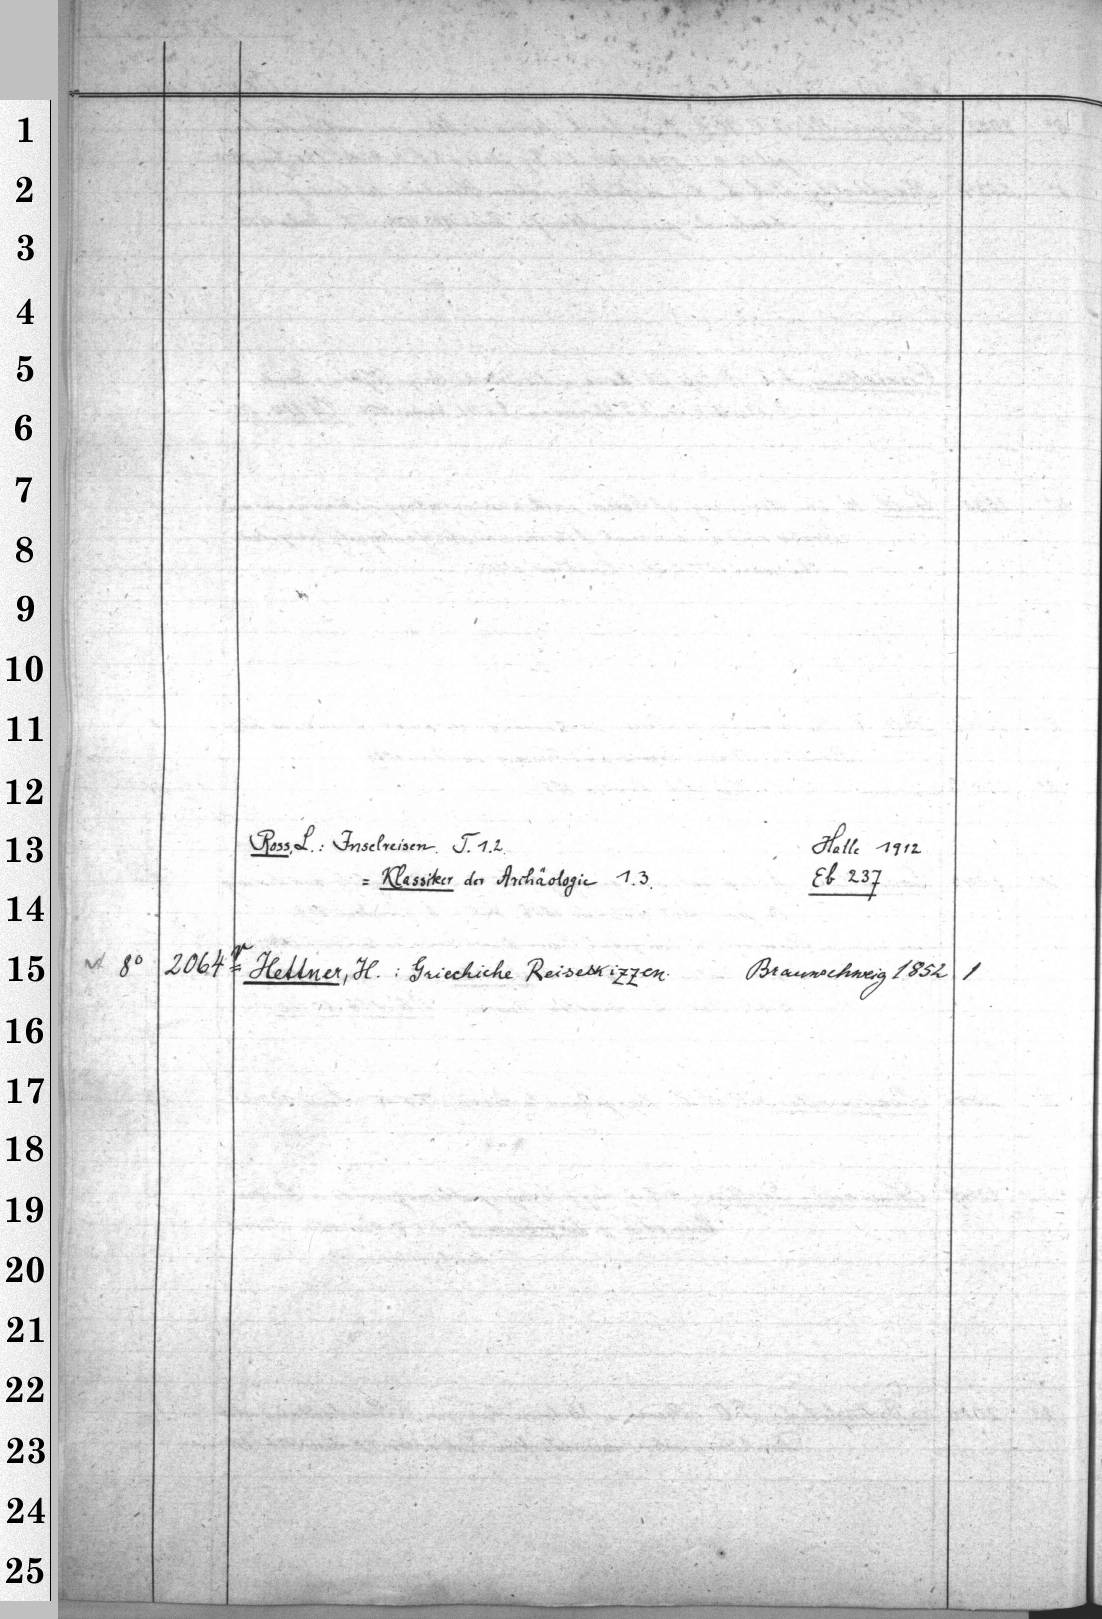 1
2
3
4
5
6
7
8
9
10
11
12
13
Ross, L.: Inselreisen. T. 1.2. Halle 1912
= Klassiker der Archäologie 1.3. Eb 237
14
15
8° 2064 Hettner, H. : Griechiche Reiseskizzen. Braunschweig 1852 1
16
17
18
19
20
21
22
23
24
25